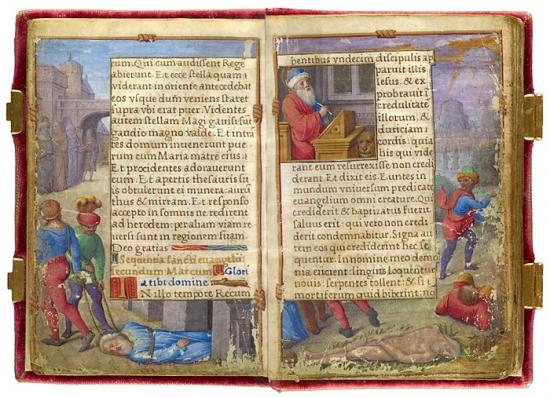 rum. Qui cum audissent Rege
abierunt. Et ecce stella quam
viderant in oriente antecedebat
eos vsque dum veniens staret
supra vbi erat puer. Videntes
autem stellam Magi gauisi st
gaudio magno valde. Et intrã
tes domum inuenerunt pue
rum cum Maria matre eius.
Et procidentes adorauerunt
eum. Et apertis thesauris su
is obtulerunt ei munera: aurũ
thus & mirram. Et responso
accepto in somnis ne redirent
ad herodem: per aliam viam re
uersi sunt in regionem suam.
Deo gratias
Sequentia sancti euangelii
secundum Marcum. Glori
a tibi domine
IN illo tempore Recum
bentibus vndecim discipulis ap
paruit illis
Iesus: & ex
probrauit ĩ
credulitatẽ
illorum, &
duriciam
cordis: quia
his qui vide
rant eum resurrexisse non credi
derant Et dixit eis. Euntes in
mundum vniuersum predicate
euangelium omni creature. Qui
crediderit & baptizatus fuerit
saluus erit: qui vero non credi
derit condemnabitur. Signa au
tem eos qui crediderint hec se
quentur. In nomine meo demo
nia eiicient: linguis loquentur
nouis: serpentes tollent: & si
mortiferum quid biberint: no